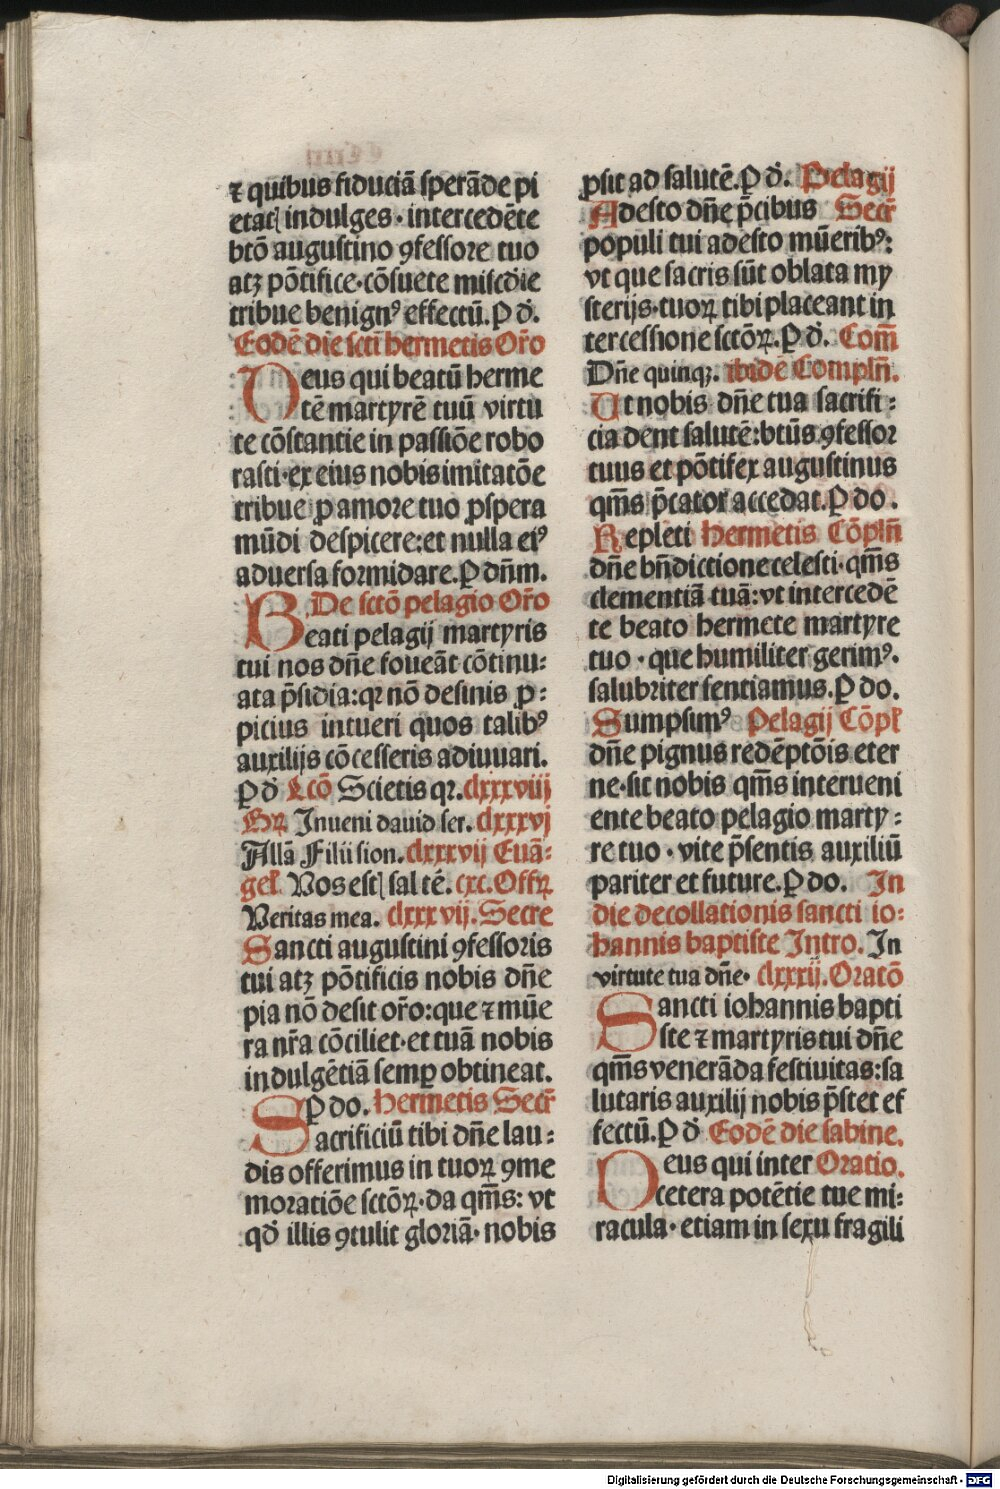 ⁊ quibus fiduciā ſperāde pi
etatꝭ indulges · intercedēte
btō auguſtino ꝯfeſſore tuo
atꝫ pōtifice · cōſuete miſcd̄ie
tribue benignꝰ effectū. P d̄.
Eodē die ſcti hermetis Or̄o
Deus qui beatū herme
tē martyrē tuū virtu
te cōſtantie in paſſiōe robo
raſti · ex eius nobis imitatōe
tribue ꝓ amore tuo ꝓſpera
mūdi deſpicere: et nulla eiꝰ
aduerſa formidare. P dn̄m.
De ſctō pelagio Or̄o
Beati pelagij martyris
tui nos dn̄e foueāt cōtinu:
ata p̄ſidia: qꝛ nō deſinis ꝓ:
picius intueri quos talibꝰ
auxilijs cōceſſeris adiuuari.
P d̄ Lcō Scietis qꝛ. clxxxviij
Gꝝ Inueni dauid ſer. clxxxvj
Allā Filii ſion. clxxxvij Euā:
gel̄ Vos eſtꝭ ſal tē. cxc. Offꝝ
Veritas mea. clxxxvij. Secre
Sancti auguſtini ꝯfeſſoris
tui atꝫ pōtificis nobis dn̄e
pia nō deſit or̄o: que ⁊ mūe
ra nr̄a cōciliet · et tuā nobis
indulgētiā ſemꝑ obtineat.
P do. Hermetis Secr̄
Sacrificiū tibi dn̄e lau:
dis offerimus in tuoꝝ ꝯme
moratiōe ſctōꝝ · da qm̄s: vt
qd̄ illis ꝯtulit gloriā · nobis
ꝓſit ad ſalutē. P d̄. Pelagij
Adeſto dn̄e p̄cibus Secr̄
populi tui adeſto mūeribꝰ:
vt que ſacris ſūt oblata my
ſterijs · tuoꝝ tibi placeant in
terceſſione ſctōꝝ. P d̄. Com̄
Dn̄e quinqꝫ. ibidē Compln̄.
Ut nobis dn̄e tua ſacrifi:
cia dent ſalutē: btūs ꝯfeſſor
tuus et pōtifex auguſtinus
qm̄s p̄cator accedat. P do.
Repleti Hermetis Cōpln̄
dn̄e bn̄dictione celeſti · qm̄s
clementiā tuā: vt intercedē
te beato hermete martyre
tuo · que humiliter gerimꝰ.
ſalubriter ſentiamus. P do.
Sumpſimꝰ Pelagij Cōpl̄
dn̄e pignus redēptōis eter
ne · ſit nobis qm̄s interueni
ente beato pelagio marty:
re tuo · vite p̄ſentis auxiliū
pariter et future. P do. In
die decollationis ſancti io:
hannis baptiſte Intro. In
virtute tua dn̄e · clxxxij. Oratō
Sancti iohannis bapti
ſte ⁊ martyris tui dn̄e
qm̄s venerāda feſtiuitas: ſa
lutaris auxilij nobis p̄ſtet ef
fectū. P d̄ Eodē die ſabine.
Deus qui inter Oratio.
cetera potētie tue mi:
racula · etiam in ſexu fragili
Digitalisierung gefördert durch die Deutsche Forschungsgemeinschaft - DFG